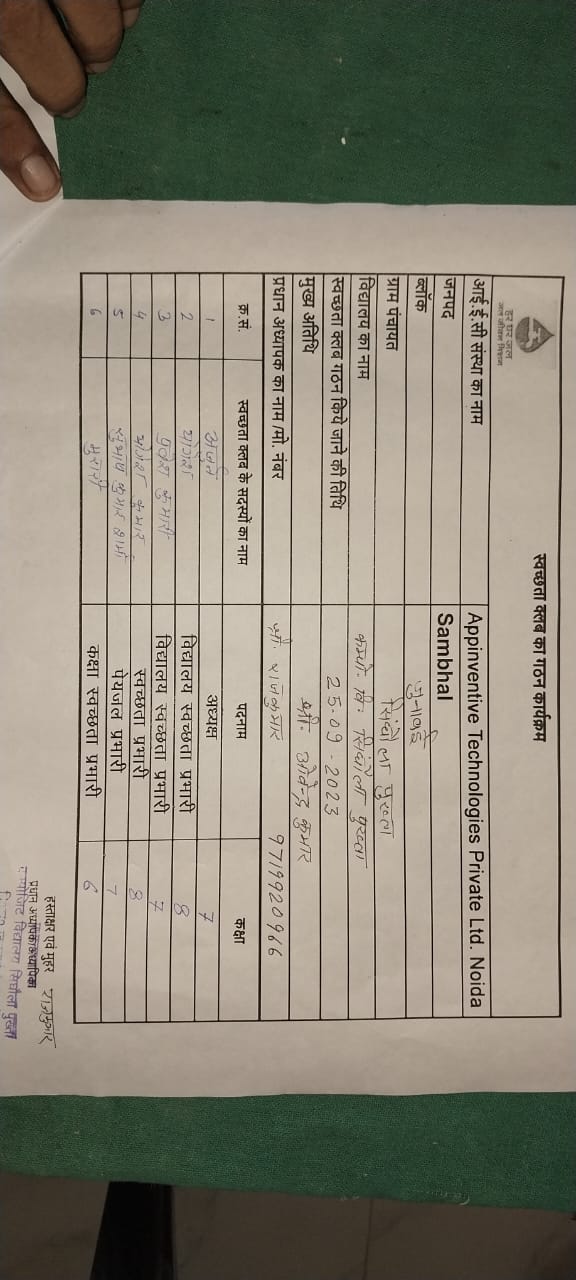 स्वच्छता क्लब का गठन कार्यक्रम
हर घर जल
जल जीवन मिशन
आई.ई.सी संस्था का नाम Appinventive Technologies Private Ltd. Noida
जनपद Sambhal
ब्लॉक जुनावई
ग्राम पंचायत सिंघौला पुख्ता
विद्यालय का नाम कम्पो. वि. सिंघौला पुख्ता
स्वच्छता क्लब गठन किये जाने की तिथि 25-09-2023
मुख्य अतिथि श्री. कुमार
प्रधान अध्यापक का नाम /मो. नंबर श्री. राजकुमार 9719920966
क्र.सं. स्वच्छता क्लब के सदस्यों का नाम पदनाम कक्षा
1 अर्जुन अध्यक्ष 7
2 योगेश विद्यालय स्वच्छता प्रभारी 8
3 कुमारी विद्यालय स्वच्छता प्रभारी 7
4 योगेश कुमार स्वच्छता प्रभारी 8
5 सुभाष कुमार शर्मा पेयजल प्रभारी 7
6 मुरारी कक्षा स्वच्छता प्रभारी 6
हस्ताक्षर एवं मुहर राजकुमार
प्रधान अध्यापक/अध्यापिका
कम्पोजिट विद्यालय सिंघौला पुख्ता